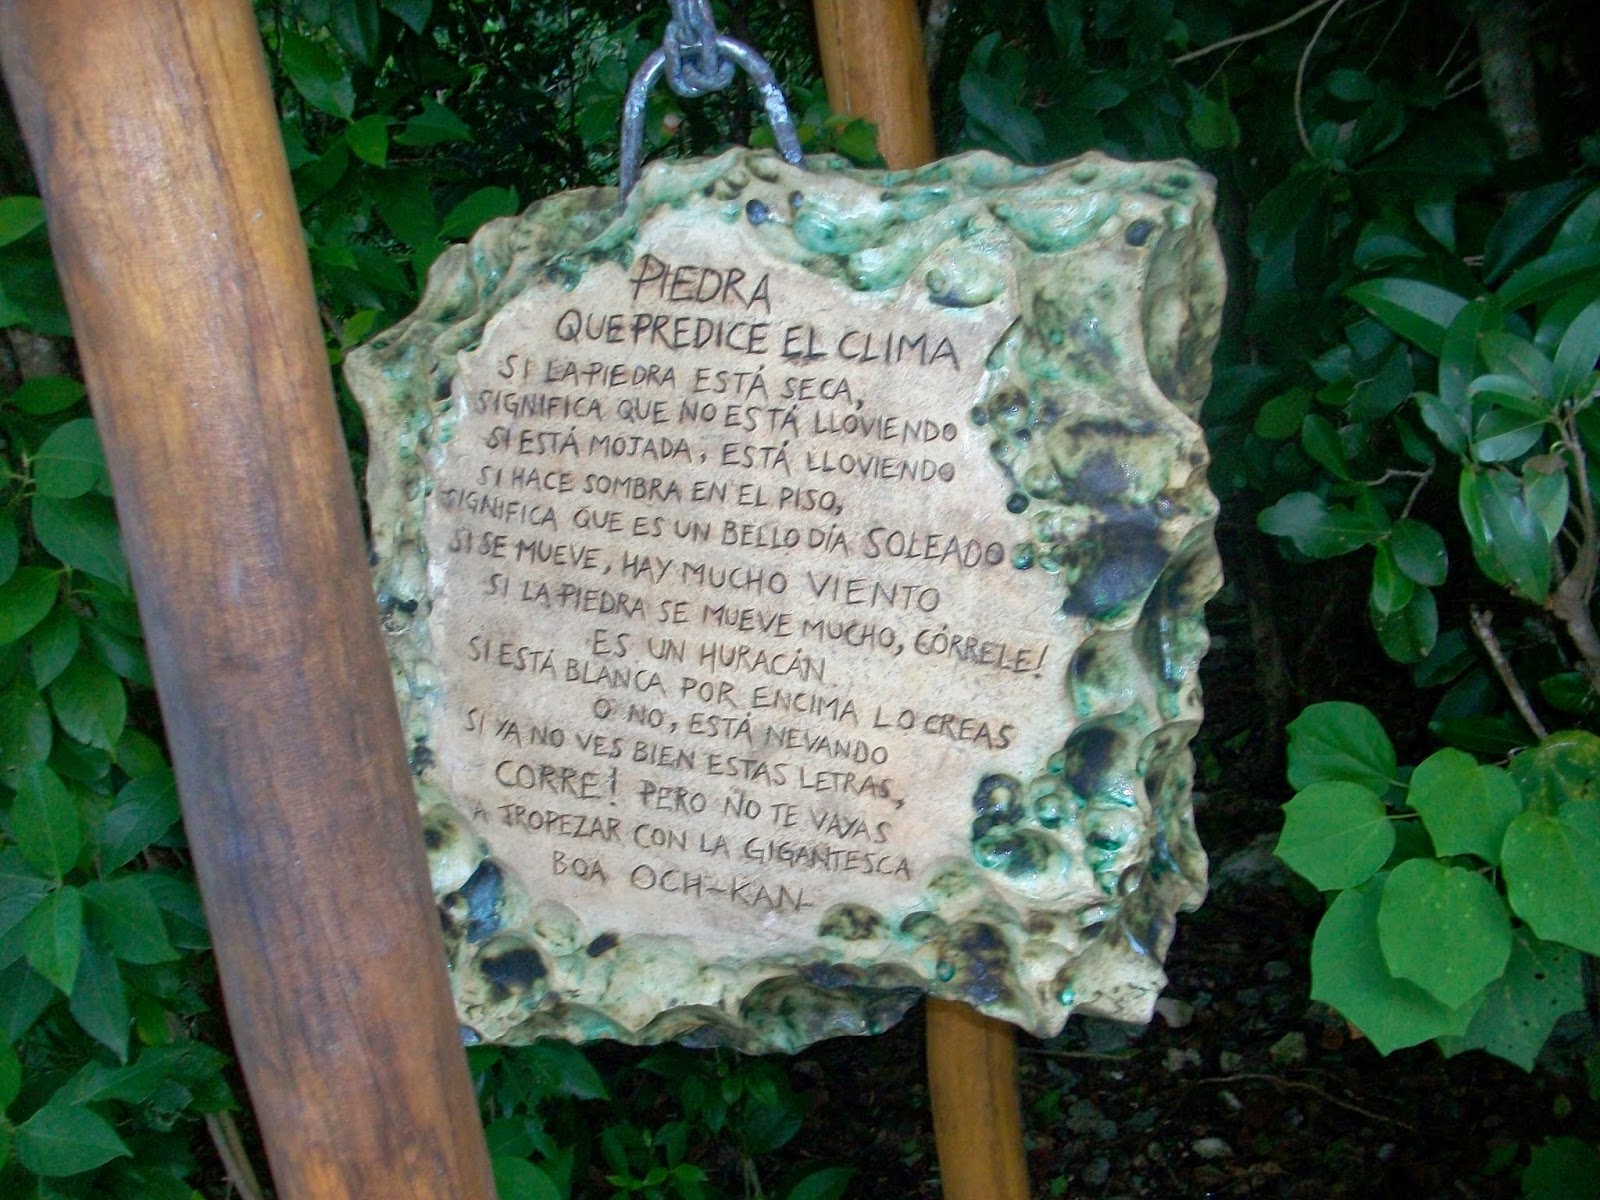 PIEDRA
QUE PREDICE EL CLIMA
SI LA PIEDRA ESTÁ SECA,
SIGNIFICA QUE NO ESTÁ LLOVIENDO
SI ESTÁ MOJADA, ESTÁ LLOVIENDO
SI HACE SOMBRA EN EL PISO,
SIGNIFICA QUE ES UN BELLO DÍA SOLEADO
SI SE MUEVE, HAY MUCHO VIENTO
SI LA PIEDRA SE MUEVE MUCHO, CÓRRELE!
ES UN HURACÁN
SI ESTÁ BLANCA POR ENCIMA LO CREAS
O NO, ESTÁ NEVANDO
SI YA NO VES BIEN ESTAS LETRAS,
CORRE! PERO NO TE VAYAS
A TROPEZAR CON LA GIGANTESCA
BOA OCH-KAN